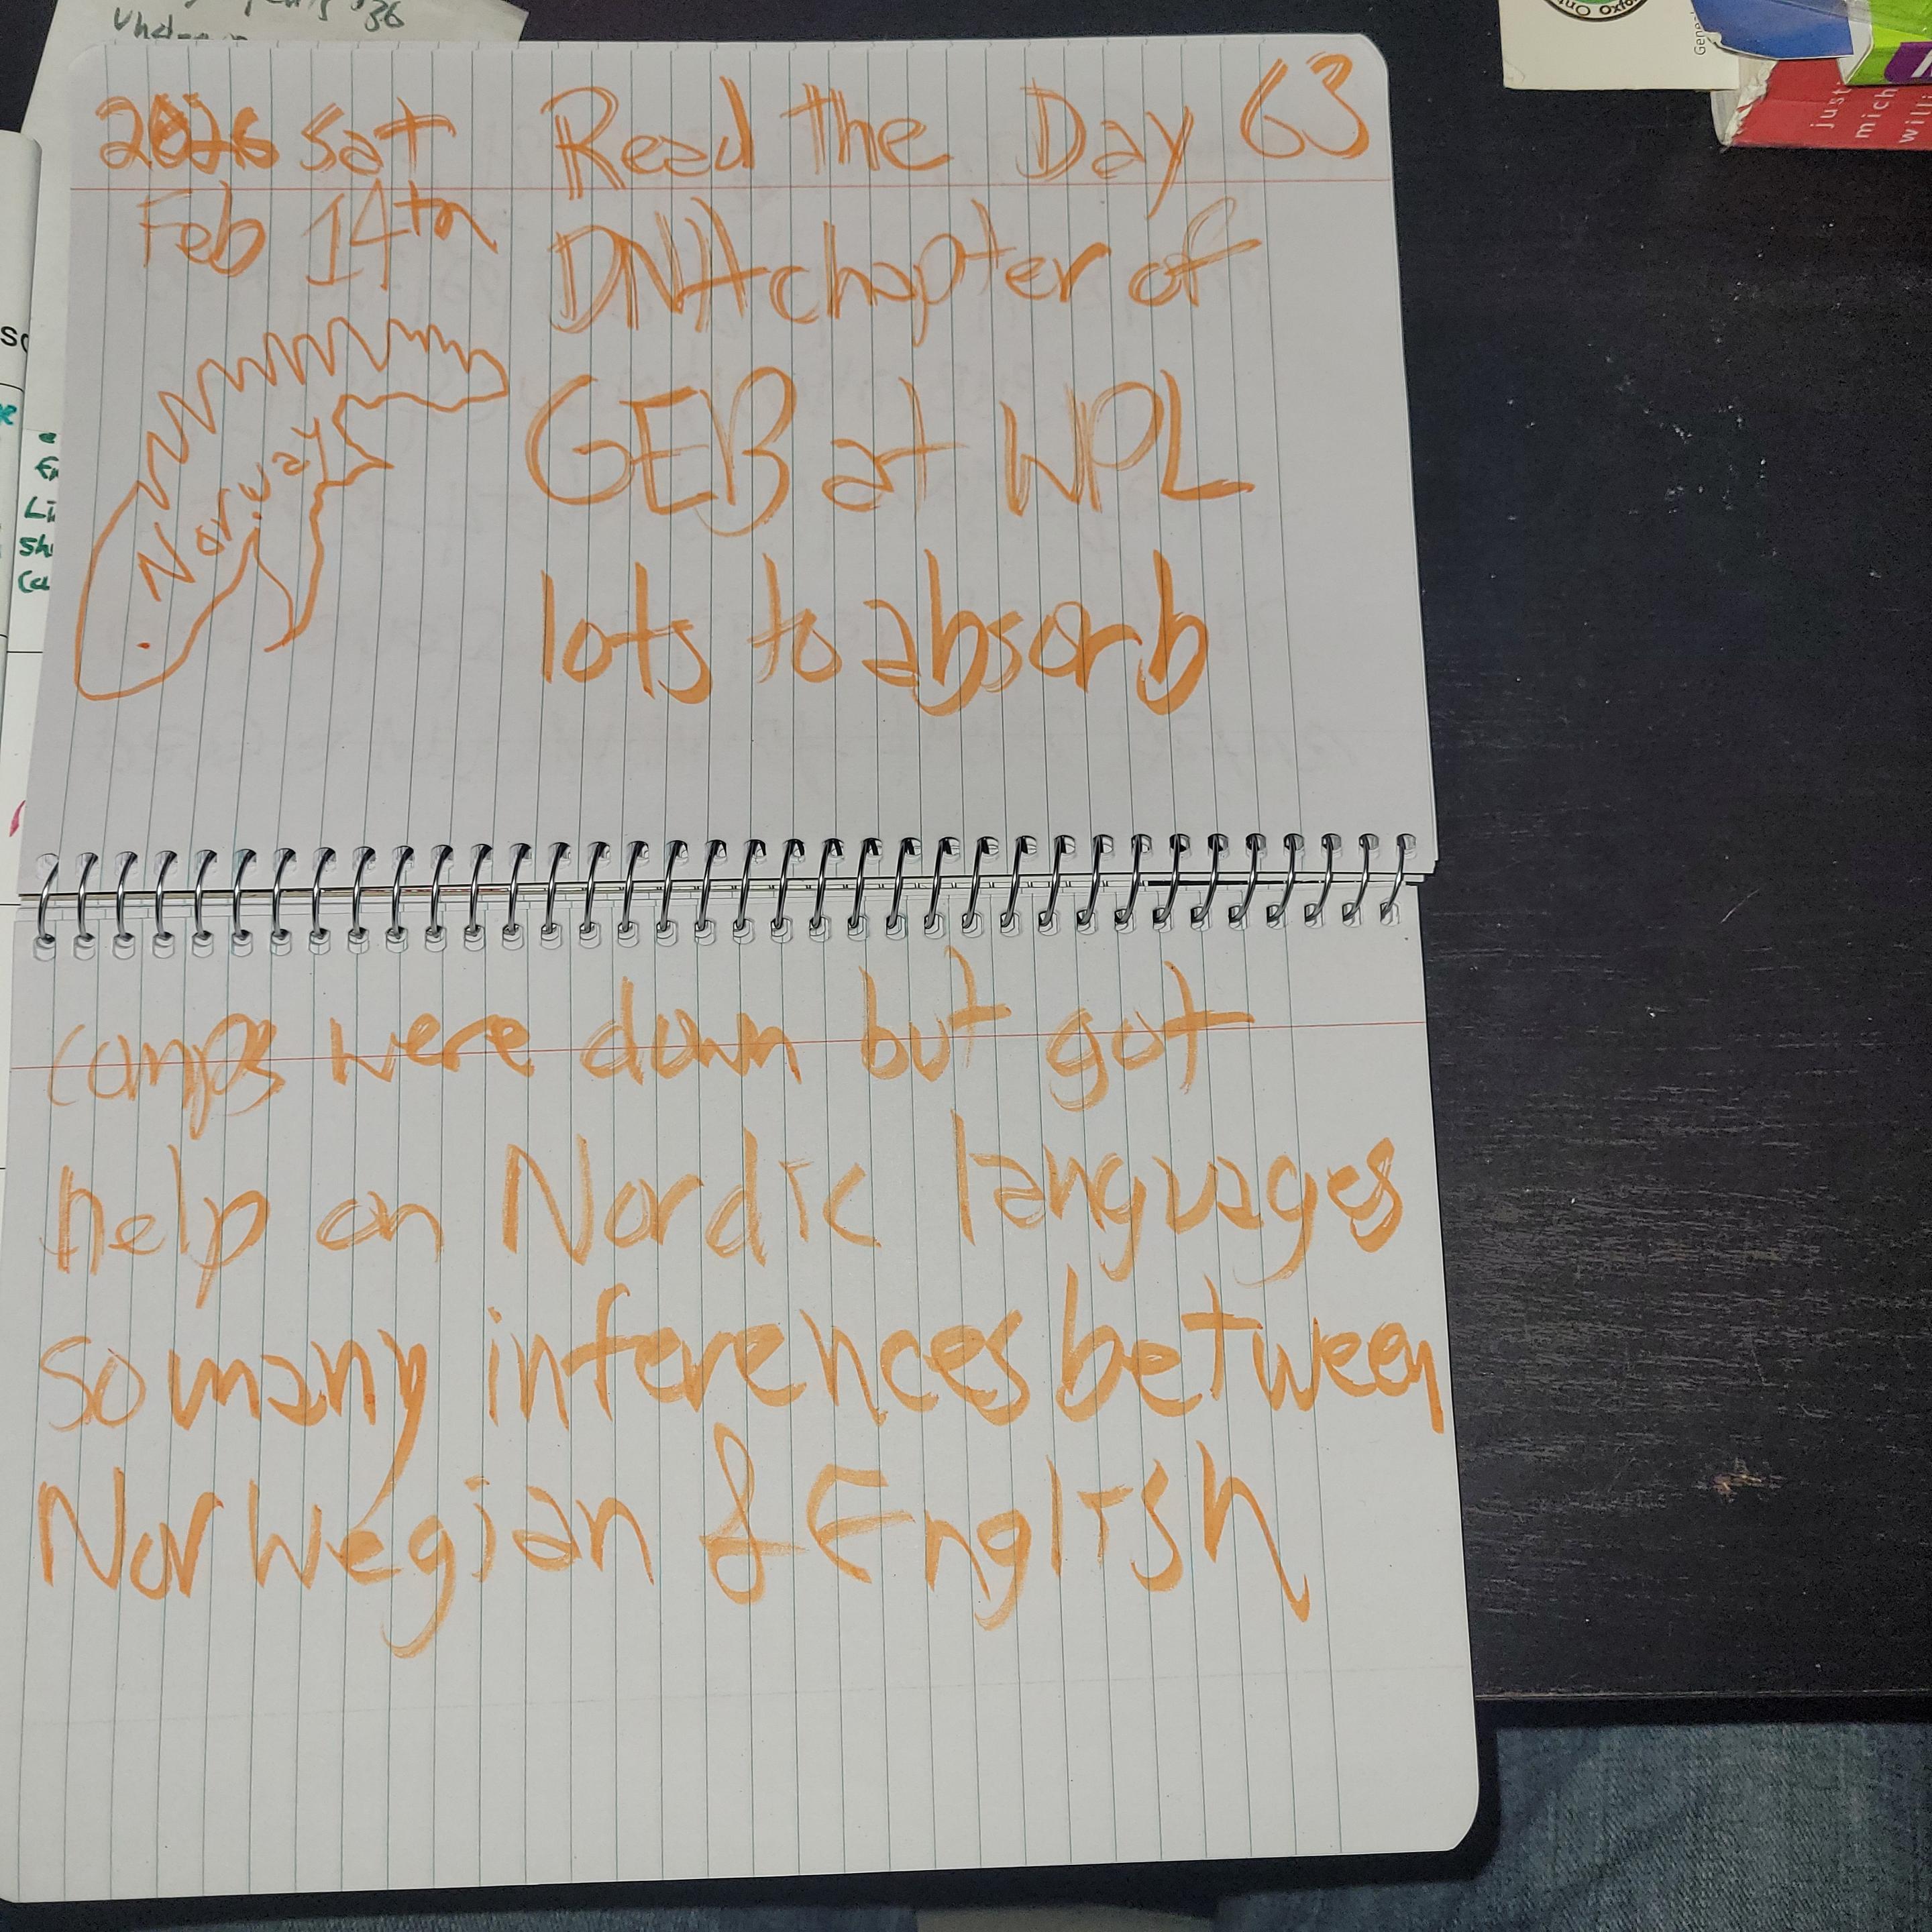 2026 Sat Read the Day 63
Feb 14th DNA chapter of
Norway
GEB at WPL
lots to absorb
comps were down but got
help on Nordic languages
so many inferences between
Norwegian & English
just
mich
willi
Gene
Li
Sh
Ca
36